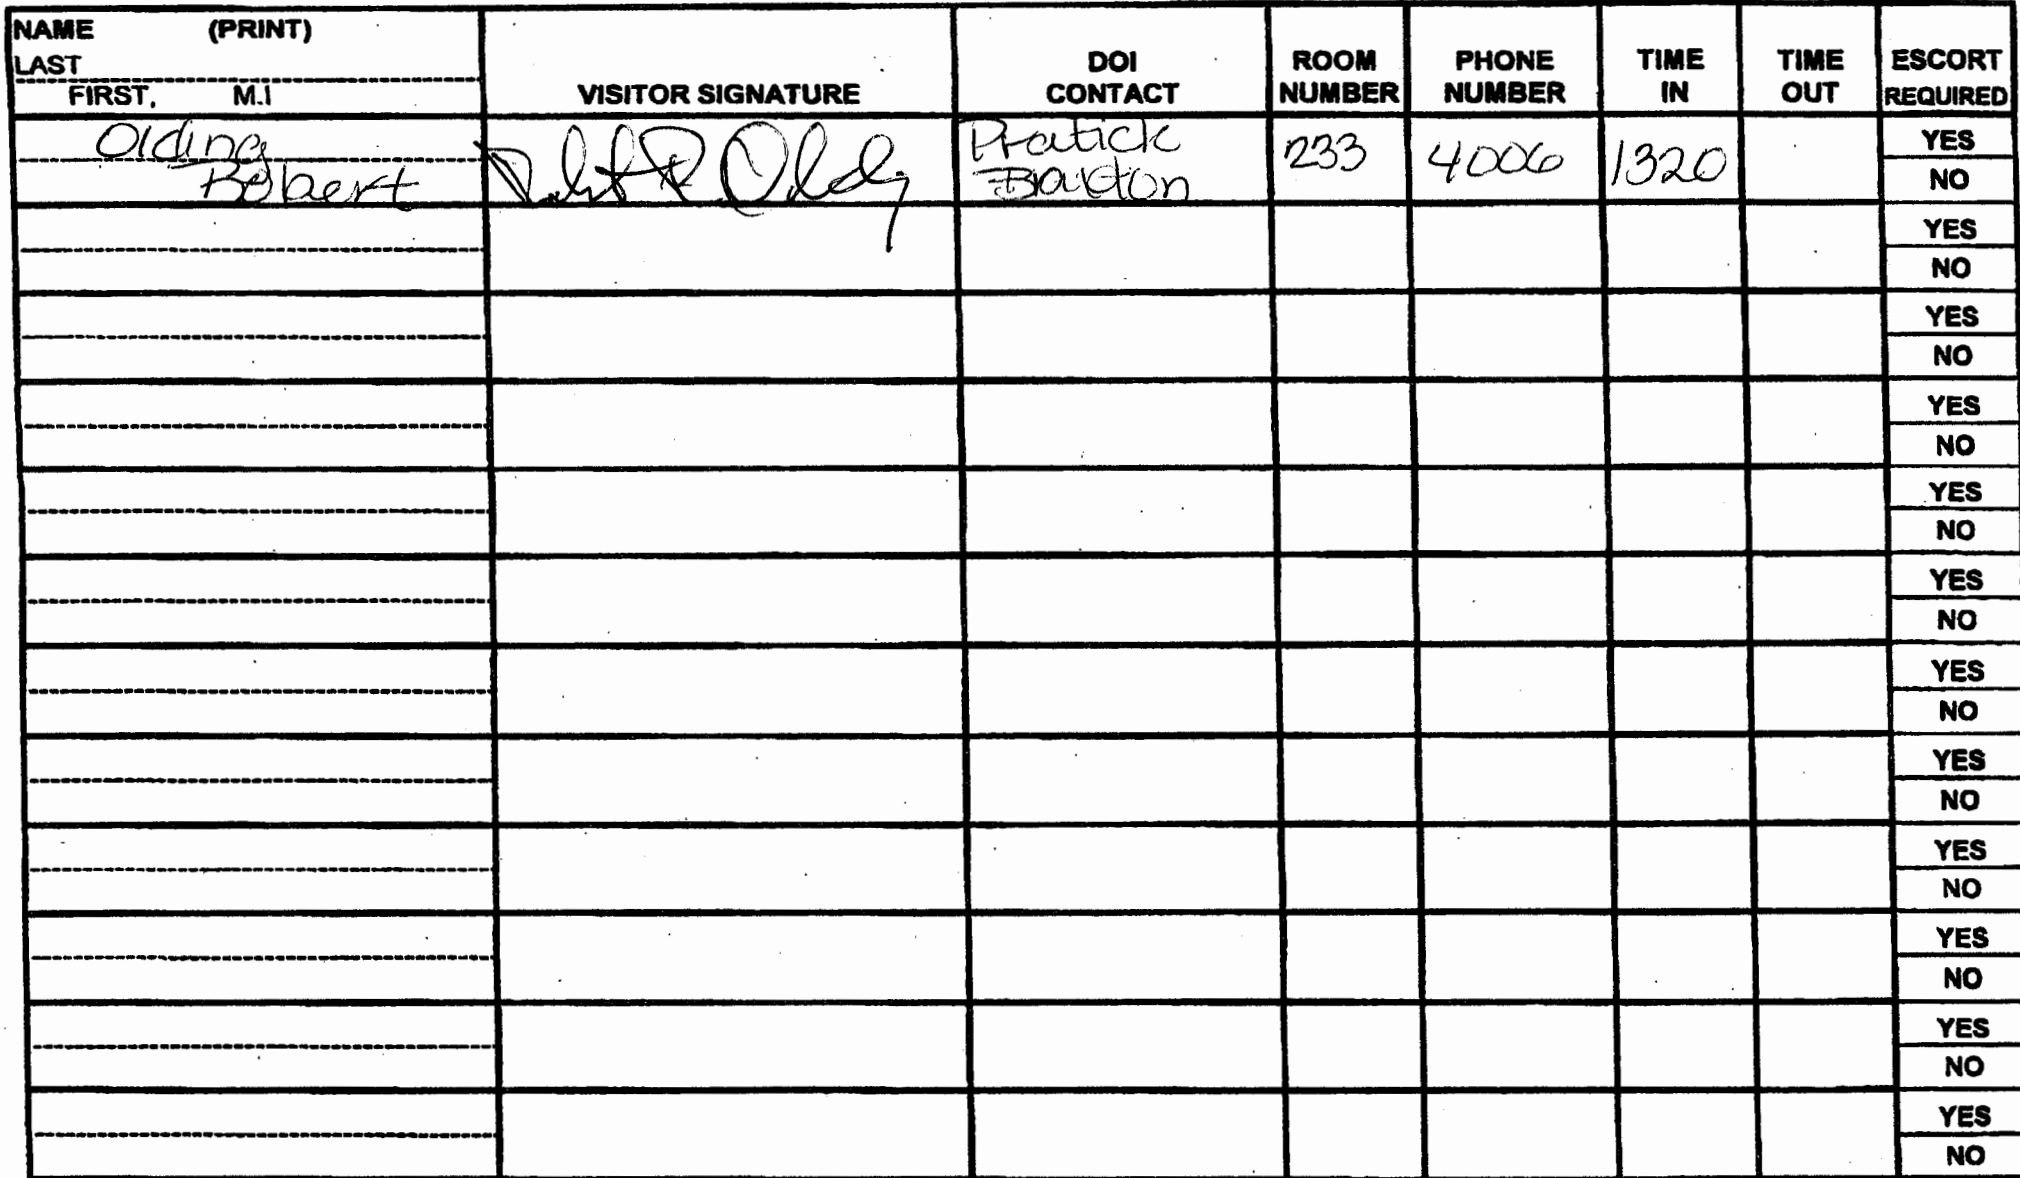 NAME (PRINT)
LAST
FIRST, M.I
VISITOR SIGNATURE
DOI
CONTACT
ROOM
NUMBER
PHONE
NUMBER
TIME
IN
TIME
OUT
ESCORT
REQUIRED
Olding
Robert
Pratick
Braxton
233
4006
1320
YES
NO
YES
NO
YES
NO
YES
NO
YES
NO
YES
NO
YES
NO
YES
NO
YES
NO
YES
NO
YES
NO
YES
NO